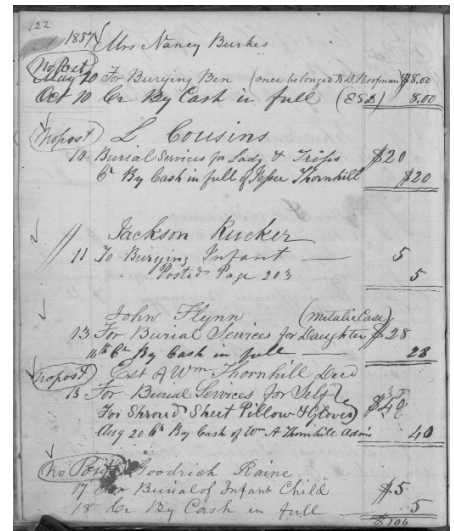 122
1857 Mrs Nancy Burks
No Post
May 10 For Burying Ben (once belonged to D. Hoopman $8.00
Oct 10 Cr By Cash in full (ESD) 8.00
(no post) L Cousins
10 Burial Services for Lady & Trips $20
Cr By Cash in full of Jesse Thornhill $20
Jackson Rucker
11 To Burying Infant — 5
Posted Page 203 5
John Flynn (Metalic Case)
13 For Burial Services for Daughter $28
14th Cr By Cash in full — 28
(no post) Est of Wm Thornhill Decd
15 For Burial Services for Self &
For Shroud Sheet Pillow & Gloves $40
Aug 20 Cr By Cash of Wm A Thornhill Admr 40
(no Post) Goodrich Raine
17 For Burial of Infant Child $5
18 Cr By Cash in full 5
$106